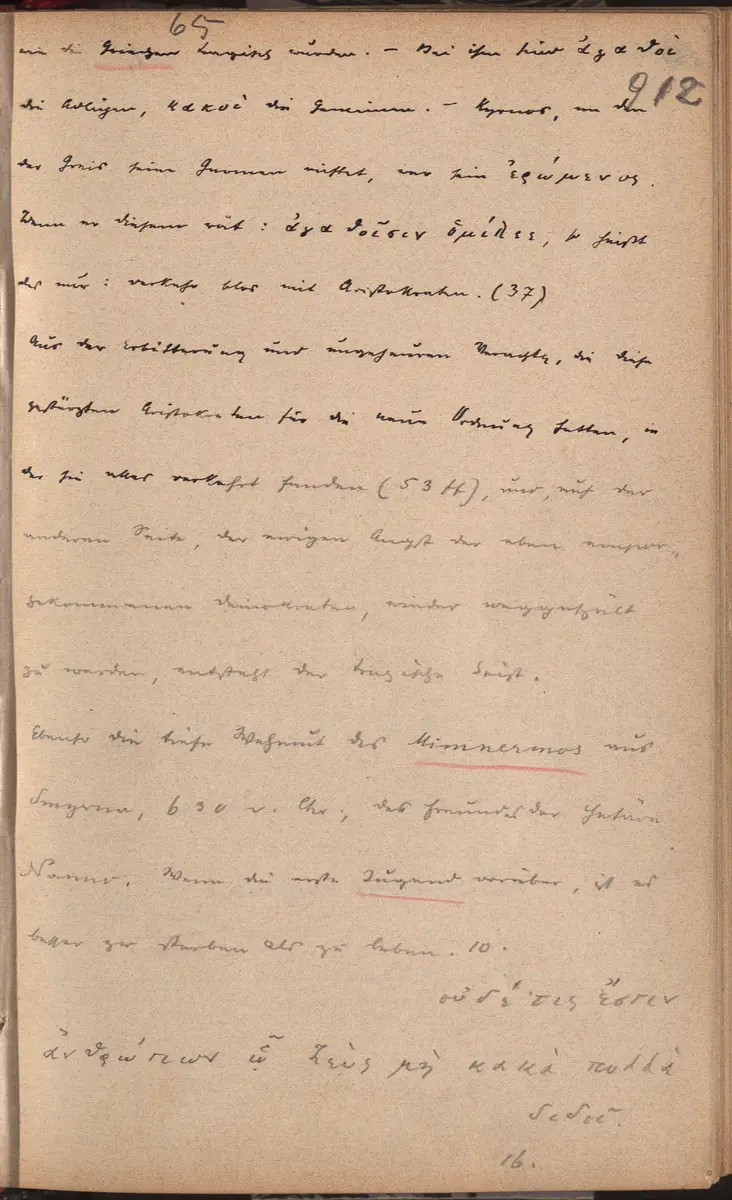 65
912
wie die Griechen tragisch wurden. — Bei ihm sind ἀγαθοὶ
die Adligen, κακοὶ die Gemeinen. — Kyrnos, an den
der Greis seine Gnomen richtet, war sein ἐρώμενος.
Wenn er diesem rät: ἀγαθοῖσιν ὁμίλει, so heißt
das nur: verkehr blos mit Aristokraten. (37)
Aus der Erbitterung und ungeheuren Verachtg, die diese
gestürzten Aristokraten für die neue Ordnung hatten, in
der sie alles verkehrt fanden (53 ff), und, auf der
anderen Seite, der ewigen Angst der eben empor-
gekommenen Demokraten, wieder weggespült
zu werden, entsteht der tragische Geist.
Ebenso die tiefe Wehmut des Mimnermos aus
Smyrna, 630 v. Chr., des Freundes der Hetäre
Nanno. Wenn die erste Jugend vorüber, ist es
besser zu sterben als zu leben. 10.
οὐδέ τις ἔστιν
ἀνθρώπων ᾧ Ζεὺς μὴ κακὰ πολλὰ
διδοῖ.
16.